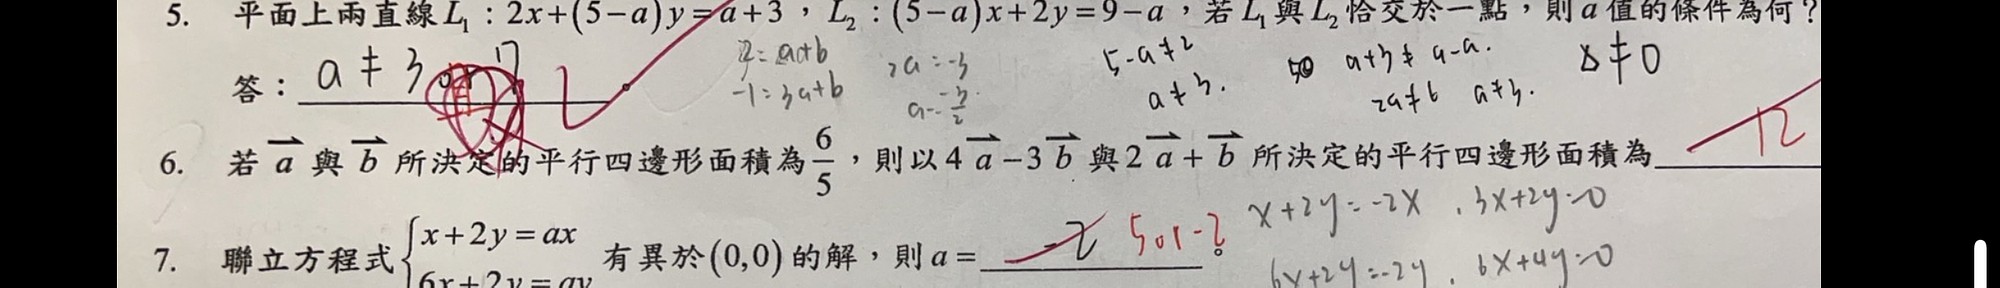 5. 平面上兩直線 L₁：2x+(5-a)y=a+3，L₂：(5-a)x+2y=9-a，若 L₁ 與 L₂ 恰交於一點，則 a 值的條件為何？
答：a ≠ 3 or 7
2=a+b
-1=3a+b
2a=-3
a=-3/2
5-a≠2
a≠3.
a+3≠9-a.
2a≠6 a≠3.
Δ≠0
6. 若 a 與 b 所決定的平行四邊形面積為 6/5，則以 4a-3b 與 2a+b 所決定的平行四邊形面積為 12
x+2y=-2x . 3x+2y=0
7. 聯立方程式 { x+2y=ax 有異於(0,0)的解，則 a= -2 5 or -2。
6x+2y=ay
6x+2y=-2y . 6x+4y=0